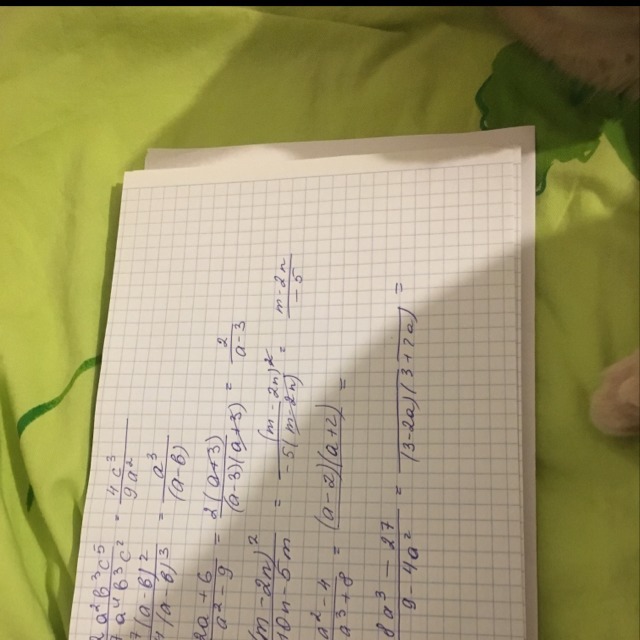 2a²b³c⁵ / a⁴b³c² = 4c³ / 9a²
(a-b)² / (a-b)³ = a³ / (a-b)
2a+6 / a²-9 = 2(a+3) / (a-3)(a+3) = 2 / a-3
(m-2n)² / 10n-5m = (m-2n)² / -5(m-2n) = m-2n / -5
a²-4 / a³+8 = (a-2)(a+2) =
8a³-27 / 9-4a² = / (3-2a)(3+2a) =